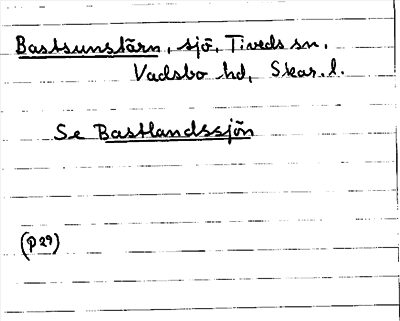 Bastsunstärn, sjö, Tiveds sn.
Vadsbo hd, Skar. l.
Se Bastlandssjön
(P27)